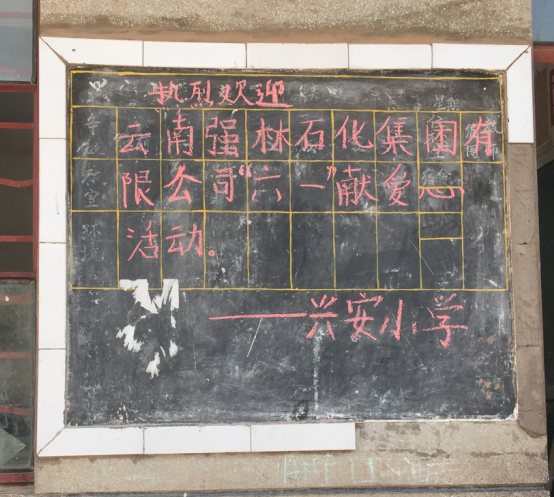 热烈欢迎
云南强林石化集团有
限公司“六一”献爱心
活动。
——兴安小学